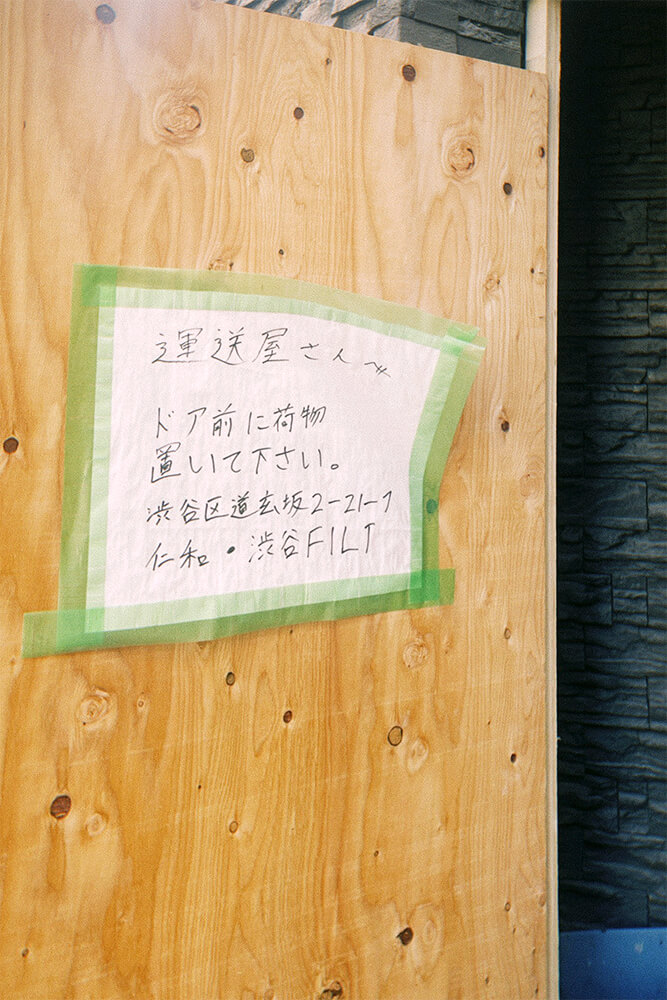 運送屋さんへ
ドア前に荷物
置いて下さい。
渋谷区道玄坂2-21-7
仁和・渋谷FILT